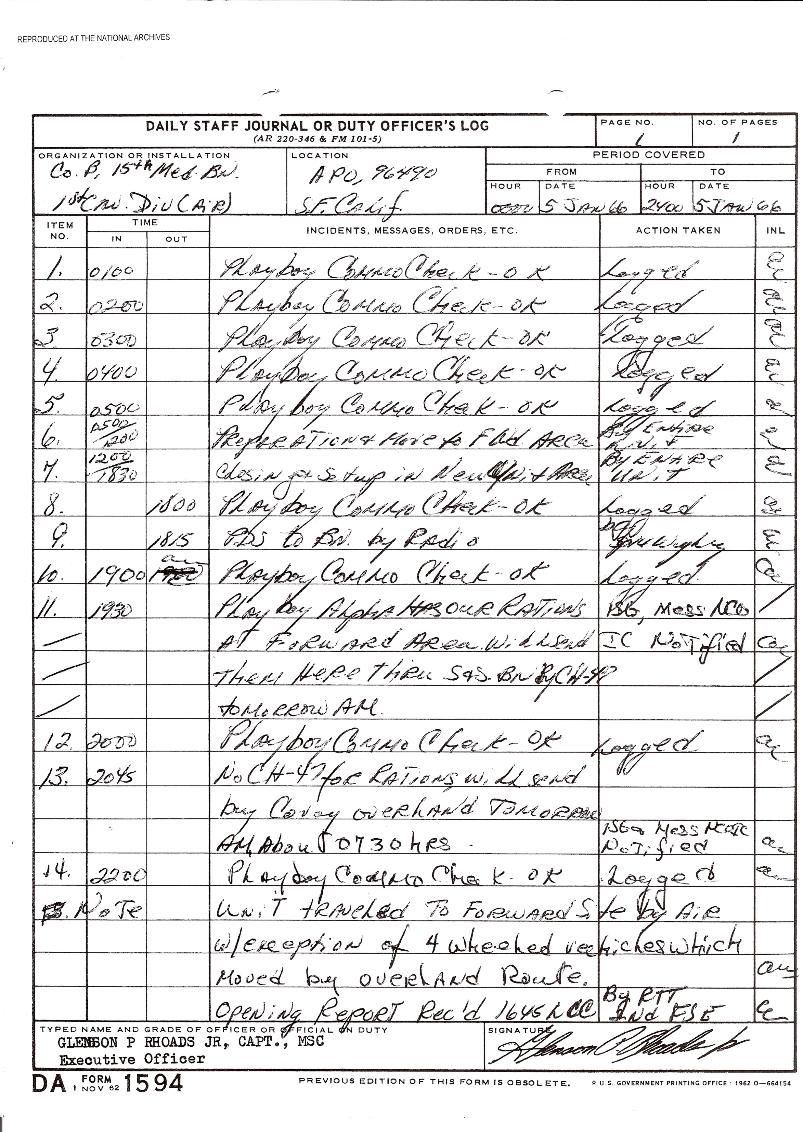 REPRODUCED AT THE NATIONAL ARCHIVES
DAILY STAFF JOURNAL OR DUTY OFFICER'S LOG
(AR 220-346 & FM 101-5)
PAGE NO.
1
NO. OF PAGES
1
ORGANIZATION OR INSTALLATION
Co. B, 15th Med. Bn.
1st Cav. Div (AiR)
LOCATION
APO, 96490
S.F. Calif.
PERIOD COVERED
FROM TO
HOUR DATE HOUR DATE
0000 5 JAN 66 2400 5 JAN 66
ITEM NO. TIME IN OUT INCIDENTS, MESSAGES, ORDERS, ETC. ACTION TAKEN INL
1. 0100 Playboy Commo Check - OK Logged
2. 0200 Playboy Commo Check - OK Logged
3. 0300 Playboy Commo Check - OK Logged
4. 0400 Playboy Commo Check - OK Logged
5. 0500 Playboy Commo Check - OK Logged
6. 0500/1200 PrepARAtion & Move to Fwd AREA By ENTiRE UNiT
7. 1200/1830 Closing & Setup in New Unit Area By ENTiRE UNiT
8. 1800 Playboy Commo Check - OK Logged
9. 1815 to Bn. by Radio
10. 1900 Playboy Commo Check - OK Logged
11. 1930 Playboy Alpha HAS OUR RAtions 1SG, Mess NCO
At FoRWARD Area. Will send IC Notified
Them HeRe Thru S&S. Bn By CH-47
tomorrow AM.
12. 2000 Playboy Commo Check - OK Logged
13. 2045 No CH-47 for RAtions Will send
by Covoy overland Tomorrow
AM, About 0730 hRS. 1SG & Mess NCOIC Notified
14. 2200 Playboy Commo Check - OK Logged
NoTe UNiT tRAveled To FoRwaRd Site by AiR
w/exception of 4 wheeled vechicles which
Moved by oveRland Route.
Opening RepoRt Rec'd 1645 By RTT
TYPED NAME AND GRADE OF OFFICER OR OFFICIAL ON DUTY
GLENSON P RHOADS JR, CAPT., MSC
Executive Officer
SIGNATURE
Glenson P Rhoads Jr
DA FORM 1 NOV 62 1594
PREVIOUS EDITION OF THIS FORM IS OBSOLETE.
U.S. GOVERNMENT PRINTING OFFICE : 1962 O-664154